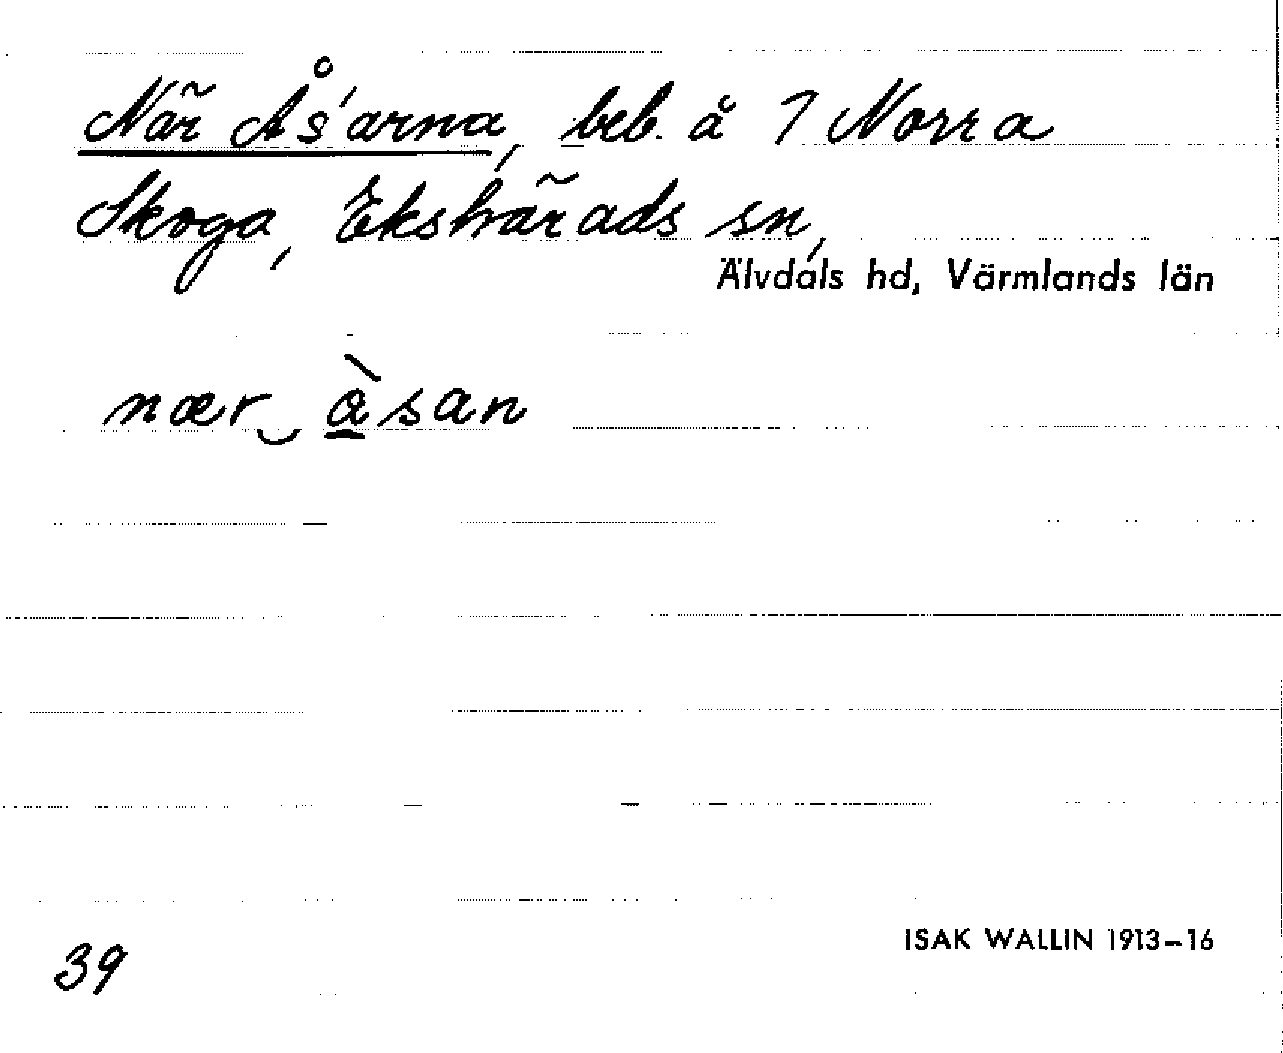 När Ås'arna, beb. å 7 Norra
Skoga, Ekshärads sn,
Älvdals hd, Värmlands län
nær‿ à̲san
39
ISAK WALLIN 1913–16